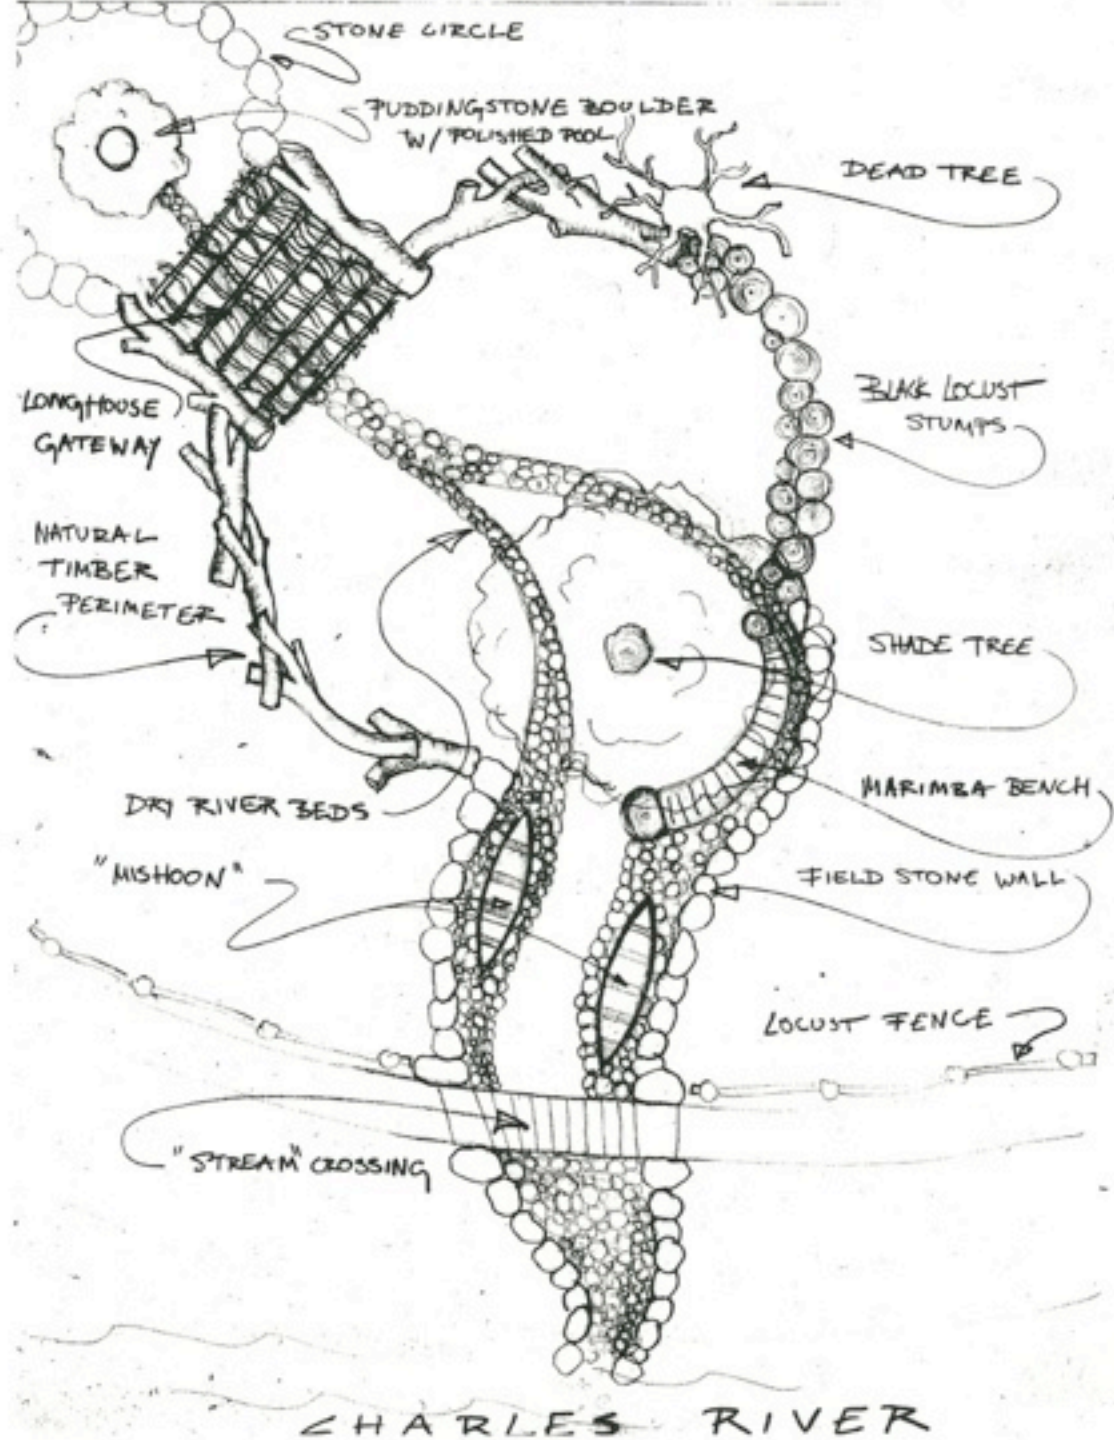 STONE CIRCLE
PUDDINGSTONE BOULDER
W/ POLISHED POOL
DEAD TREE
BLACK LOCUST
STUMPS
LONGHOUSE
GATEWAY
NATURAL
TIMBER
PERIMETER
SHADE TREE
DRY RIVER BEDS
MARIMBA BENCH
"MISHOON"
FIELD STONE WALL
LOCUST FENCE
"STREAM" CROSSING
CHARLES RIVER